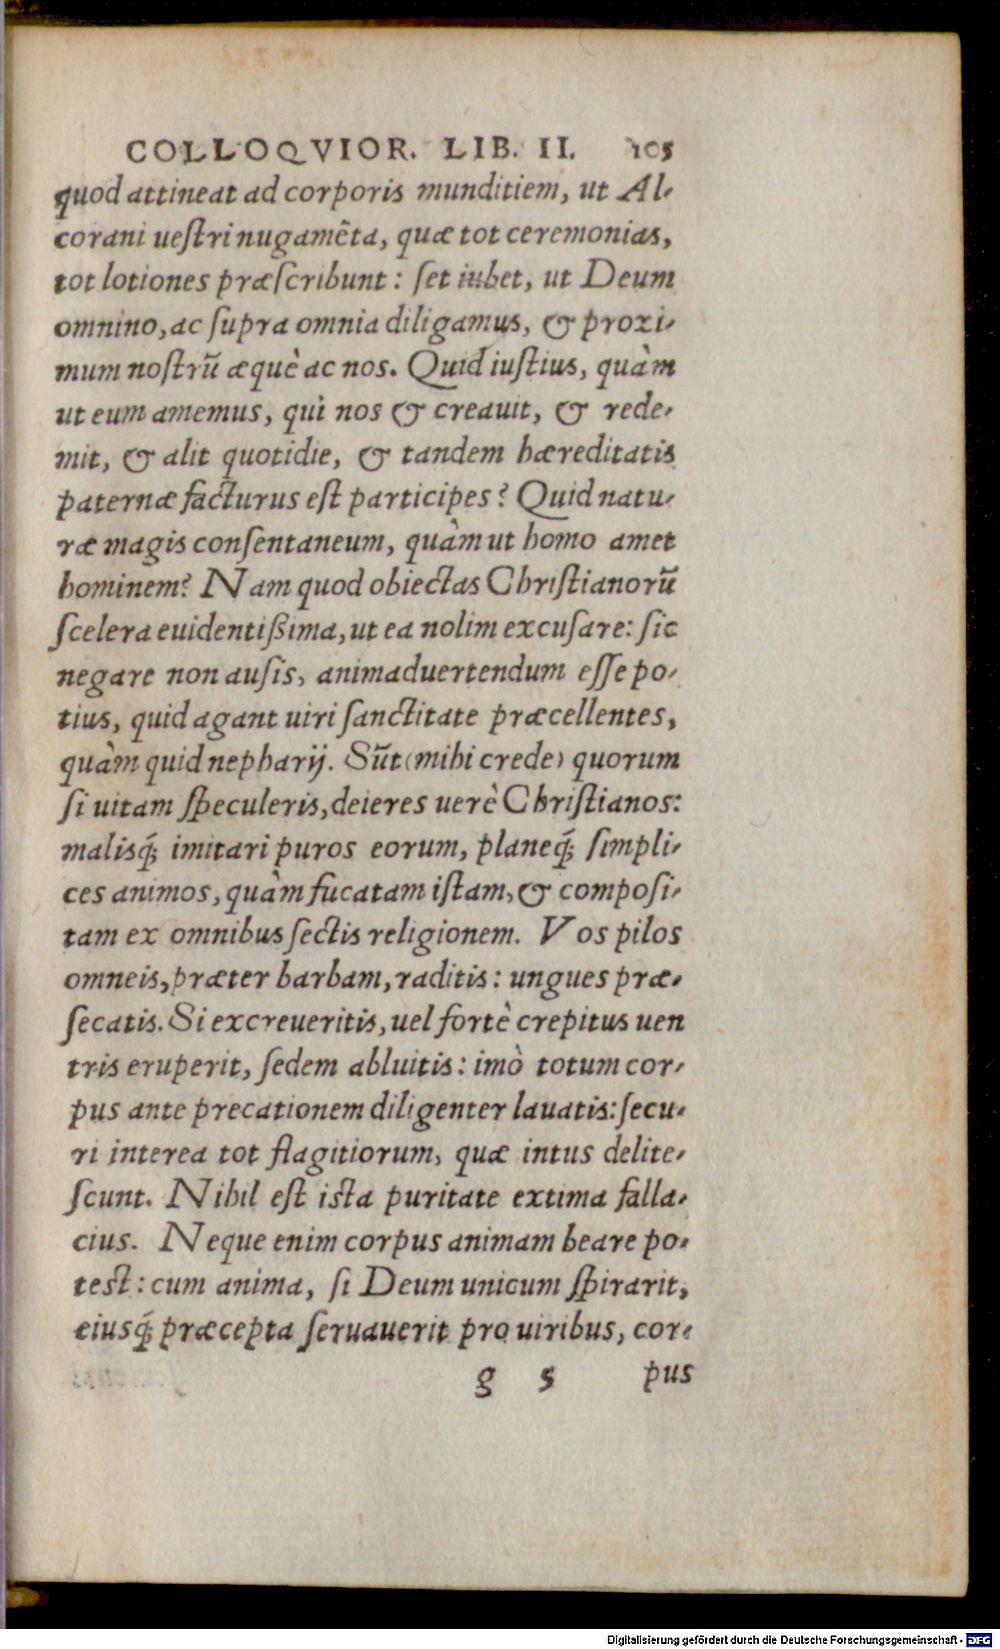 COLLOQVIOR. LIB. II. 105
quod attineat ad corporis munditiem, ut Al-
corani ueſtri nugamēta, quæ tot ceremonias,
tot lotiones præſcribunt: ſet iubet, ut Deum
omnino, ac ſupra omnia diligamus, & proxi-
mum noſtrū æquè ac nos. Quid iuſtius, quàm
ut eum amemus, qui nos & creauit, & rede-
mit, & alit quotidie, & tandem hæreditatis
paternæ facturus eſt participes? Quid natu-
ræ magis conſentaneum, quàm ut homo amet
hominem? Nam quod obiectas Chriſtianorū
ſcelera euidentißima, ut ea nolim excuſare: ſic
negare non auſis, animaduertendum eſſe po-
tius, quid agant uiri ſanctitate præcellentes,
quàm quid nepharij. Sūt (mihi crede) quorum
ſi uitam ſpeculeris, deieres uerè Chriſtianos:
malisq́; imitari puros eorum, planeq́; ſimpli-
ces animos, quàm fucatam iſtam, & compoſi-
tam ex omnibus ſectis religionem. Vos pilos
omneis, præter barbam, raditis: ungues præ-
ſecatis. Si excreueritis, uel fortè crepitus uen
tris eruperit, ſedem abluitis: imò totum cor-
pus ante precationem diligenter lauatis: ſecu-
ri interea tot flagitiorum, quæ intus delite-
ſcunt. Nihil eſt iſta puritate extima falla-
cius. Neque enim corpus animam beare po-
teſt: cum anima, ſi Deum unicum ſpirarit,
eiusq́; præcepta ſeruauerit pro uiribus, cor-
g 5 pus
Digitalisierung gefördert durch die Deutsche Forschungsgemeinschaft - DFG